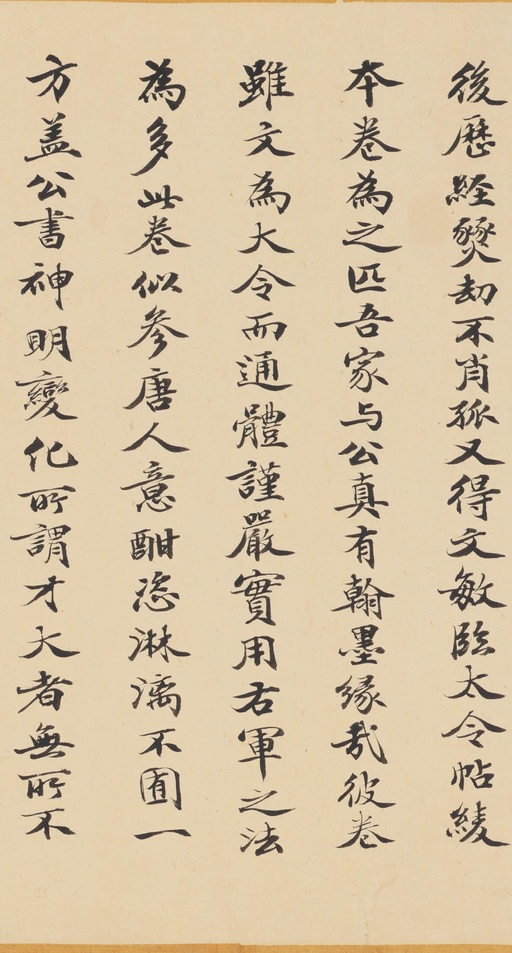 後歷経燹劫不肖孤又得文敏臨太令帖綾
本卷為之匹吾家与公真有翰墨缘哉彼卷
雖文為大令而通體謹嚴實用右軍之法
為多此卷似參唐人意酣恣淋漓不囿一
方盖公書神明變化所謂才大者無所不